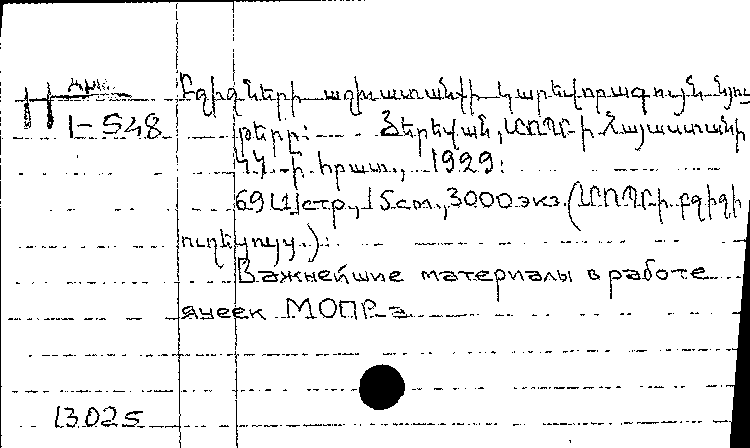 Բջիջների աշխատանքի կարևորագույն նյու
I-548
թերը: Յերեվան, ՄՈՊՐ-ի Հայաստանի
ԿԿ-ի հրատ., 1929:
69[1]стр., 15см., 3000экз. (ՄՈՊՐ-ի բջիջի
ուղեցույց.):
Важнейшие материалы в работе
ячеек МОПР-а
13025